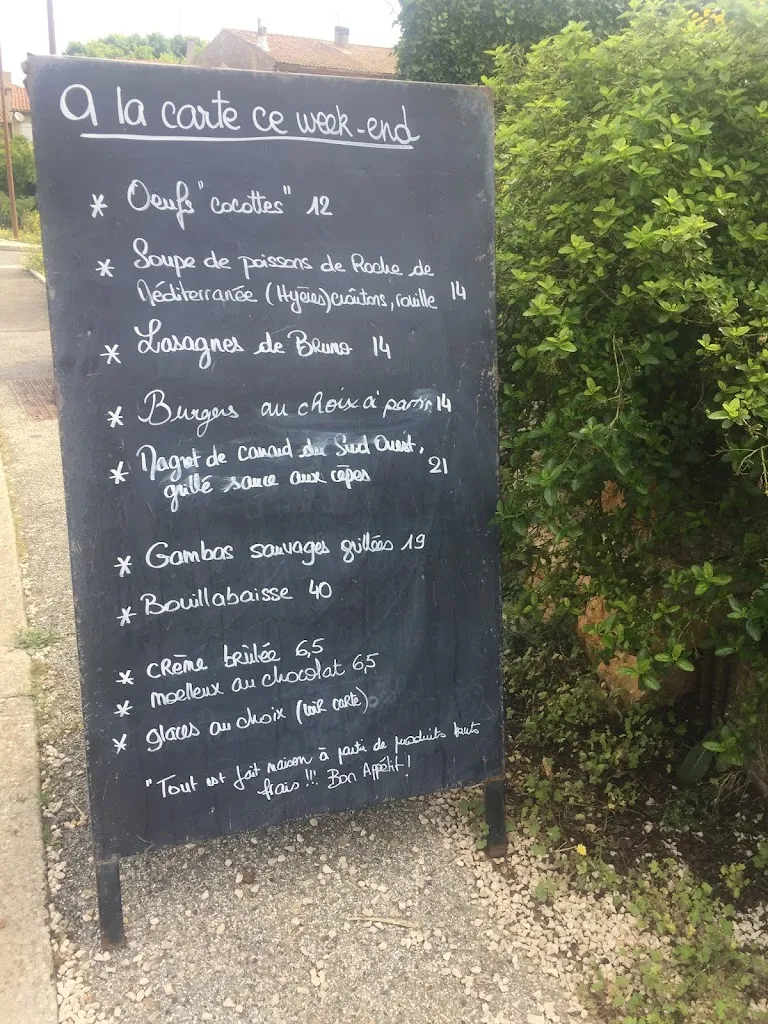 a la carte ce week-end
* Oeufs "cocottes" 12
* Soupe de poissons de Roche de
Méditerranée (Hyères) croûtons, rouille 14
* Lasagnes de Bruno 14
* Burgers au choix à partir 14
* Magret de canard du Sud Ouest,
grillé sauce aux cèpes 21
* Gambas sauvages grillées 19
* Bouillabaisse 40
* crème brûlée 6,5
* moelleux au chocolat 6,5
* glaces au choix (voir carte)
"Tout est fait maison à partir de produits bruts
frais !!! Bon Appétit !